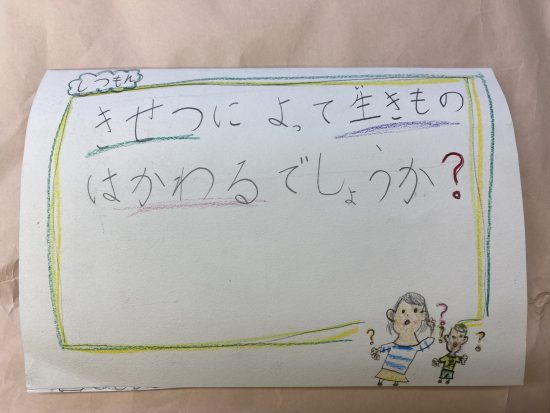 しつもん
きせつによって生きもの
はかわるでしょうか?
? ? ? ?